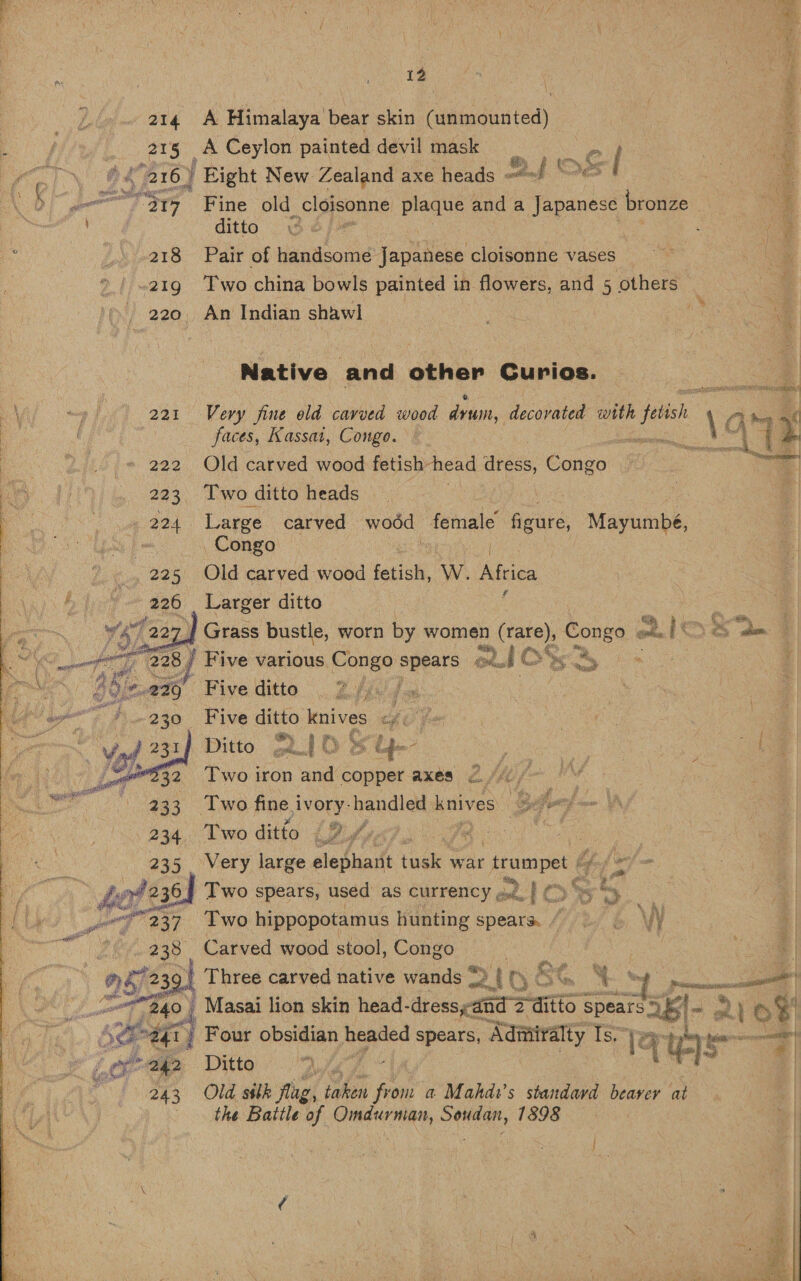 12
214 A Himalaya bear skin (unmounted)
215 A Ceylon painted devil mask
216 Eight New Zealand axe heads 21081
217 Fine old cloisonne plaque and a Japanese bronze
ditto
218 Pair of handsome Japanese cloisonne vases
219 Two china bowls painted in flowers, and 5 others
220 An Indian shawl
Native and other Curios.
221 Very fine old carved wood drum, decorated with fetish
faces, Kassai, Congo.
222 Old carved wood fetish head dress, Congo
223 Two ditto heads
224 Large carved wood female figure, Mayumbé,
Congo
225 Old carved wood fetish, W. Africa
226 Larger ditto
227 Grass bustle, worn by women (rare), Congo 21082
228 Five various Congo spears 21083
229 Five ditto
230 Five ditto knives
231 Ditto 21084
232 Two iron and copper axes
233 Two fine ivory-handled knives
234 Two ditto
235 Very large elephant tusk war trumpet
236 Two spears, used as currency 21085
237 Two hippopotamus hunting spears.
238 Carved wood stool, Congo
239 Three carved native wands 21086
240 Masai lion skin head-dress, and 2 ditto spears
241 Four obsidian headed spears, Admiralty Is.
242 Ditto
243 Old silk flag, taken from a Mahdi's standard bearer at
the Battle of Omdurman, Soudan, 1898